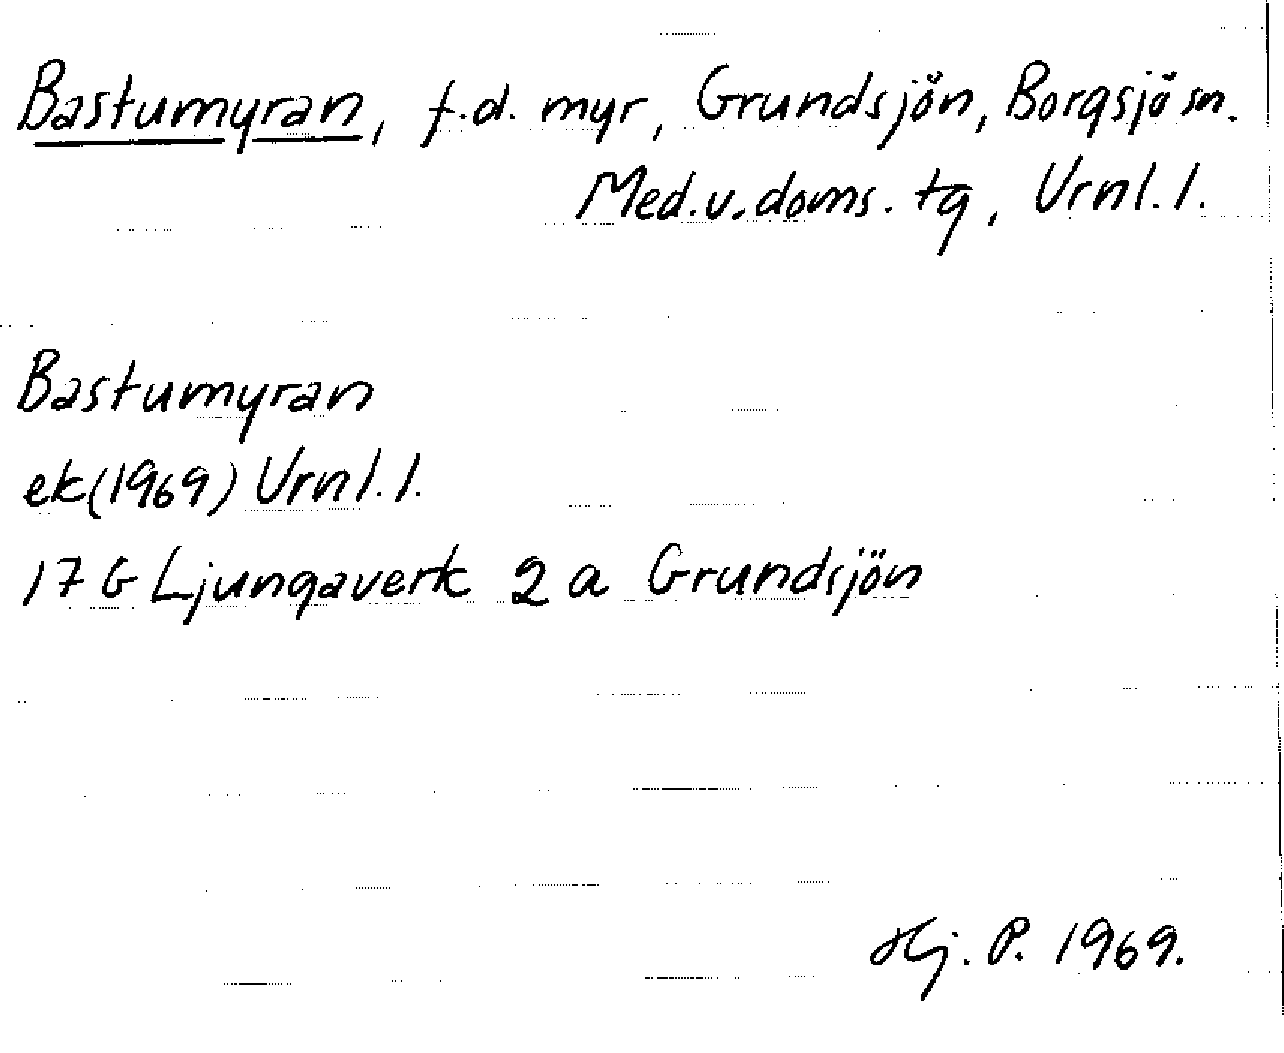 Bastumyran, f.d. myr, Grundsjön, Borgsjö sn.
Med.v.doms.tg, Vrnl.l.
Bastumyran
ek(1969) Vrnl.l.
17 G Ljungaverk 2 a Grundsjön
Hj. P. 1969.